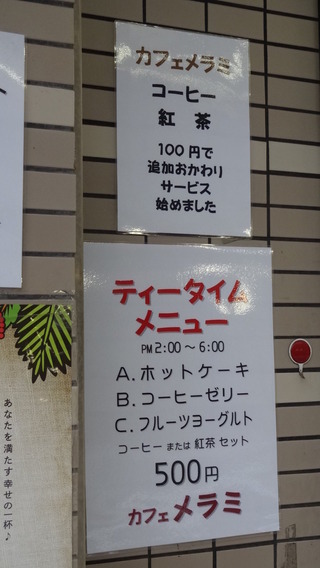 カフェメラミ
コーヒー
紅 茶
100円で
追加おかわり
サービス
始めました
ティータイム
メニュー
PM 2:00～6:00
A.ホットケーキ
B.コーヒーゼリー
C.フルーツヨーグルト
コーヒー または 紅茶 セット
500円
カフェ メラミ
あなたを満たす幸せの一杯♪